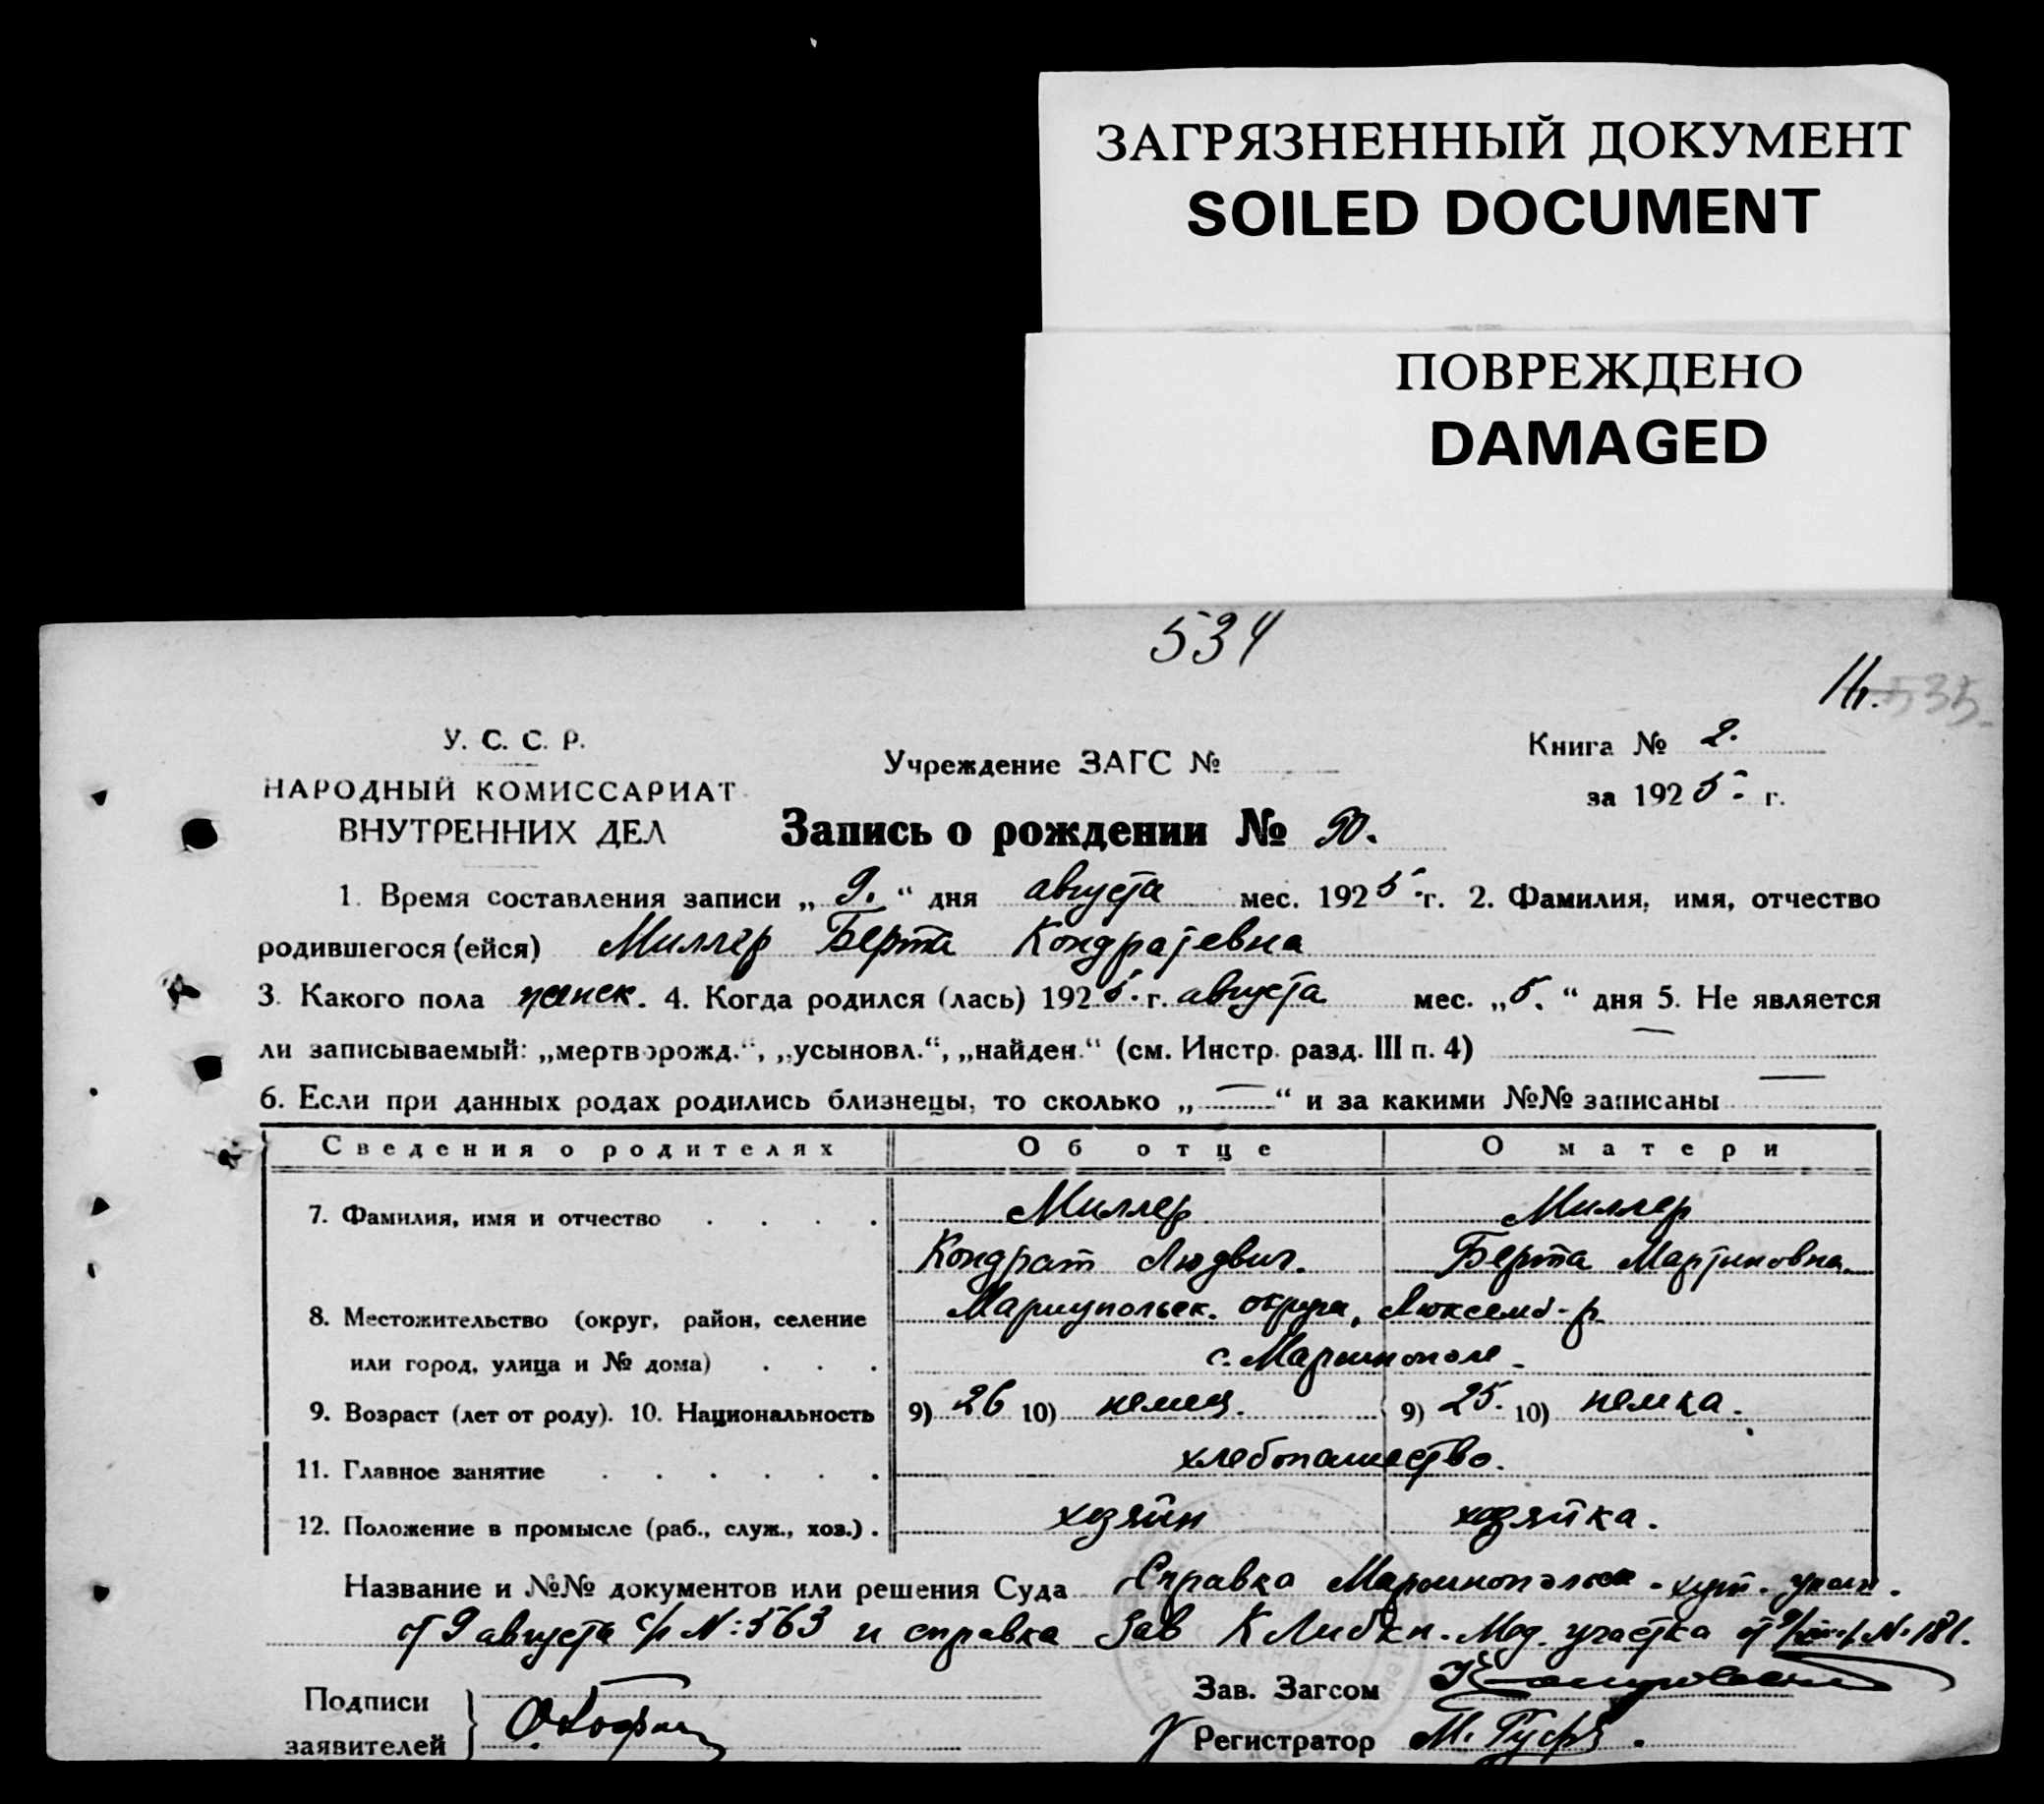 ЗАГРЯЗНЕННЫЙ ДОКУМЕНТ
SOILED DOCUMENT
ПОВРЕЖДЕНО
DAMAGED
534
535
У. С. С. Р.
НАРОДНЫЙ КОМИССАРИАТ
ВНУТРЕННИХ ДЕЛ
Учреждение ЗАГС №
Книга № 2.
за 1925 г.
Запись о рождении № 90.
1. Время составления записи „9.“ дня августа мес. 1925 г. 2. Фамилия, имя, отчество
родившегося (ейся) Миллер Берта Кондратевна
3. Какого пола женск. 4. Когда родился (лась) 1925 г. августа мес. „5.“ дня 5. Не является
ли записываемый: „мертворожд.“, „усыновл.“, „найден.“ (см. Инстр. разд. III п. 4) —
6. Если при данных родах родились близнецы, то сколько „—“ и за какими №№ записаны —
Сведения о родителях Об отце О матери
7. Фамилия, имя и отчество . . . . Миллер Миллер
Кондрат Людвиг. Берта Мартиновна.
8. Местожительство (округ, район, селение Мариупольск. округа, Люксемб-р.
или город, улица и № дома) . . . с. Мариинополе
9. Возраст (лет от роду). 10. Национальность 9) 26 10) немец. 9) 25. 10) немка.
11. Главное занятие . . . . . . хлебопашество.
12. Положение в промысле (раб., служ., хоз.) . хозяин хозяйка.
Название и №№ документов или решения Суда Справка
от 9 августа с/г N: 563 и справка Зав К Либкн. Мед. участка от N. 181.
Подписи
заявителей
Зав. Загсом
Регистратор М.